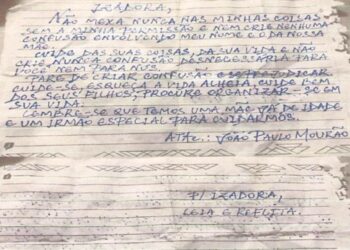 IZADORA,
NÃO MEXA NUNCA NAS MINHAS COISAS
SEM A MINHA PERMISSÃO E NEM CRIE NENHUMA
CONFUSÃO ENVOLVENDO MEU NOME E O DA NOSSA
MÃE.
CUIDE DAS SUAS COISAS, DA SUA VIDA E NÃO
CRIE NUNCA CONFUSÃO DESNECESSÁRIA PARA
VOCÊ NEM PARA NÓS.
PARE DE CRIAR CONFUSÃO
CUIDE-SE, ESQUEÇA A VIDA ALHEIA CUIDE BEM
DOS SEUS FILHOS, PROCURE ORGANIZAR-SE EM
SUA VIDA.
LEMBRE-SE QUE TEMOS UMA MÃE JÁ DE IDADE
E UM IRMÃO ESPECIAL PARA CUIDARMOS.
ATT.: JOÃO PAULO MOURÃO
P/ IZADORA,
LEIA E REFLITA.